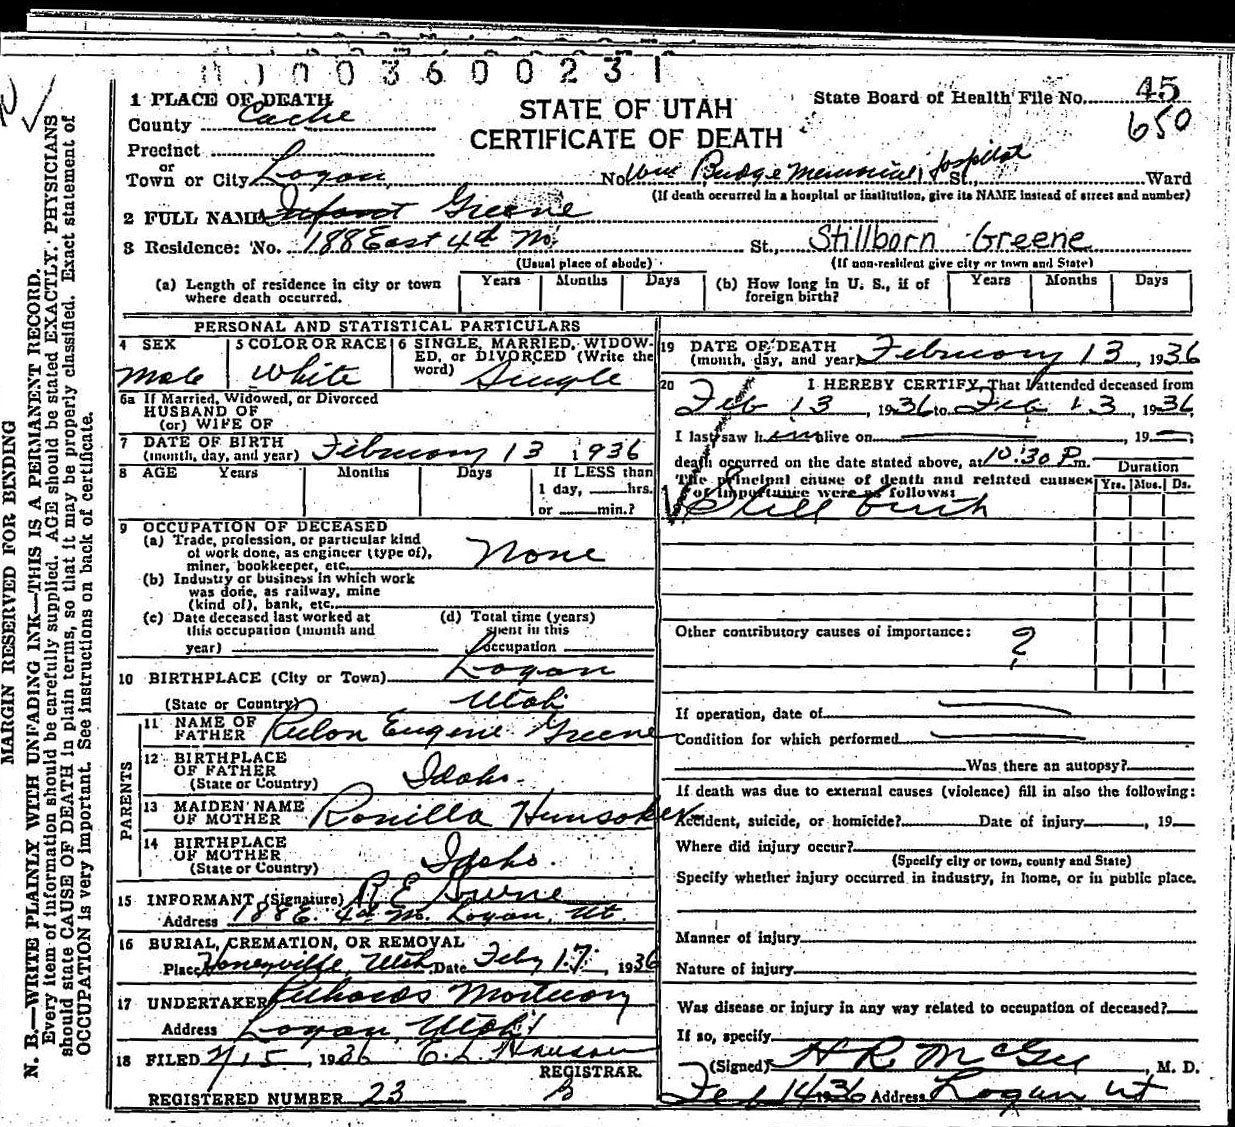 1 0 0 3 6 0 0 2 3 1
1 PLACE OF DEATH
County Cache
STATE OF UTAH
CERTIFICATE OF DEATH
State Board of Health File No. 45
650
Precinct
or
Town or City Logan No. Wm Budge Memorial Hospital St., Ward
(If death occurred in a hospital or institution, give its NAME instead of street and number)
2 FULL NAME Infant Greene
3 Residence: No. 188 East 4th No. St., Stillborn Greene
(Usual place of abode) (If non-resident give city or town and State)
(a) Length of residence in city or town where death occurred. Years Months Days (b) How long in U. S., if of foreign birth? Years Months Days
PERSONAL AND STATISTICAL PARTICULARS
4 SEX Male
5 COLOR OR RACE White
6 SINGLE, MARRIED, WIDOWED, or DIVORCED (Write the word) Single
6a If Married, Widowed, or Divorced
HUSBAND OF
(or) WIFE OF
7 DATE OF BIRTH
(month, day, and year) February 13 1936
8 AGE Years Months Days If LESS than
1 day, hrs.
or min.?
9 OCCUPATION OF DECEASED
(a) Trade, profession, or particular kind
of work done, as engineer (type of),
miner, bookkeeper, etc. None
(b) Industry or business in which work
was done, as railway, mine
(kind of), bank, etc.
(c) Date deceased last worked at
this occupation (month and
year)
(d) Total time (years)
spent in this
occupation
10 BIRTHPLACE (City or Town) Logan
(State or Country) Utah
PARENTS
11 NAME OF
FATHER Rulon Eugene Greene
12 BIRTHPLACE
OF FATHER
(State or Country) Idaho.
13 MAIDEN NAME
OF MOTHER Ronilla Hunsaker
14 BIRTHPLACE
OF MOTHER
(State or Country) Idaho.
15 INFORMANT (Signature) R E Greene
Address 188 E. 4th No. Logan, Ut.
16 BURIAL, CREMATION, OR REMOVAL
Place Honeyville, Utah Date Feby 17, 1936
17 UNDERTAKER Richards Mortuary
Address Logan, Utah
18 FILED 2/15, 1936 E. L. Hanson
REGISTRAR.
REGISTERED NUMBER 23
19 DATE OF DEATH
(month, day, and year) February 13, 1936
20 I HEREBY CERTIFY, That I attended deceased from
Feb 13, 1936 to Feb 13, 1936,
I last saw him alive on , 19 ;
death occurred on the date stated above, at 10:30 P.m.
The principal cause of death and related causes
of importance were as follows:
Duration
Yrs. Mos. Ds.
Still birth
Other contributory causes of importance:
?
If operation, date of
Condition for which performed
Was there an autopsy?
If death was due to external causes (violence) fill in also the following:
Accident, suicide, or homicide? Date of injury , 19
Where did injury occur?
(Specify city or town, county and State)
Specify whether injury occurred in industry, in home, or in public place.
Manner of injury
Nature of injury
Was disease or injury in any way related to occupation of deceased?
If so, specify
(Signed) H R McGee, M. D.
Feb 14 1936 Address Logan Ut
MARGIN RESERVED FOR BINDING
N. B.—WRITE PLAINLY WITH UNFADING INK—THIS IS A PERMANENT RECORD.
Every item of information should be carefully supplied. AGE should be stated EXACTLY. PHYSICIANS
should state CAUSE OF DEATH in plain terms, so that it may be properly classified. Exact statement of
OCCUPATION is very important. See instructions on back of certificate.